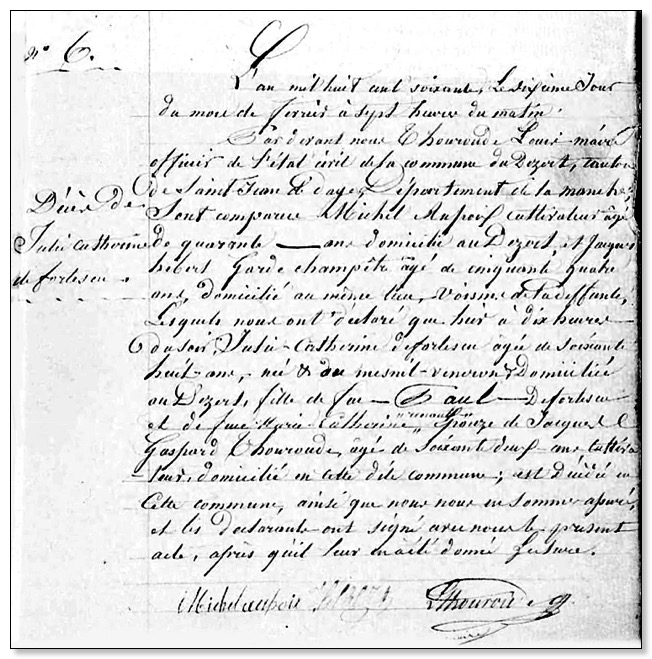 n° 6.
L'an mil huit cent soixante, Le dixième Jour
du mois de fevrier à sept heures du matin.
Par devant nous Thouroude Louis maire
officier de l'état civil de la commune du Dezert, canton
de Saint Jean de daye, Département de la manche,
Sont comparus Michel Aupoix cultivateur âgé
de quarante — ans domicilié au Dezert, et Jacques
hebert Garde champêtre âgé de cinquante quatre
ans, domicilié au même lieu, voisins de la deffunte,
Lesquels nous ont déclaré que hier à dix heures
du soir, Julie-Catherine deforlescu agée de soixante
huit-ans, née au mesnil-veneron & Domiciliée
au Dezert, fille de feu — Paul — Deforlescu
et de feue Marie Catherine "renault" Epouze de Jacques
Gaspard Thouroude, âgé de Soixante deux-ans cultiva
-teur, domicilié en cette dite commune; est Décédée en
Cette commune, ainsi que nous nous en sommes assuré,
et les déclarants ont signé avec nous le présent
acte, après qu'il leur en a été donné lecture.
Décès de
Julie catherine
de forlescu.
Michel aupoix
LThouroude